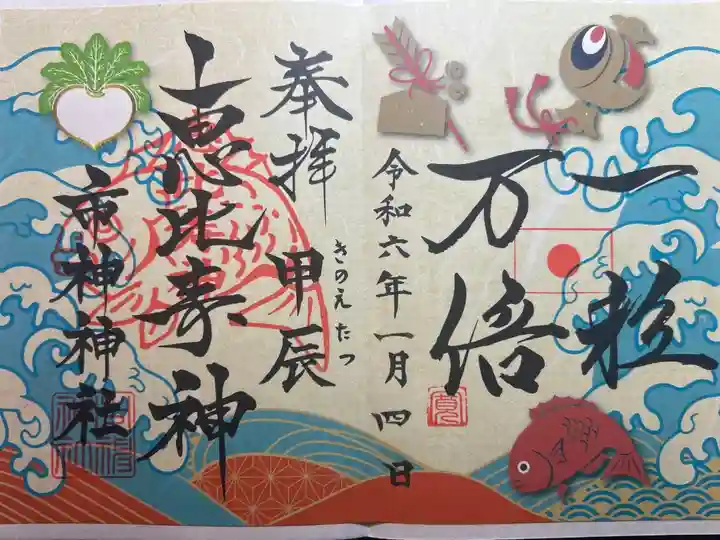 一粒
万倍
令和六年一月四日
奉拝 甲辰
きのえ たつ
十恵比寿神
市神神社